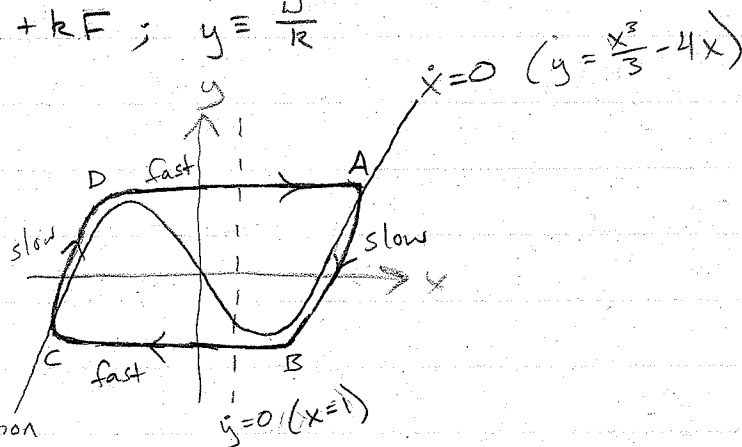 + kF ; y ≡ /k
ẋ=0 (y = x³/3 - 4x)
y
D fast A
slow
slow
x
C fast B
ẏ=0 (x=1)